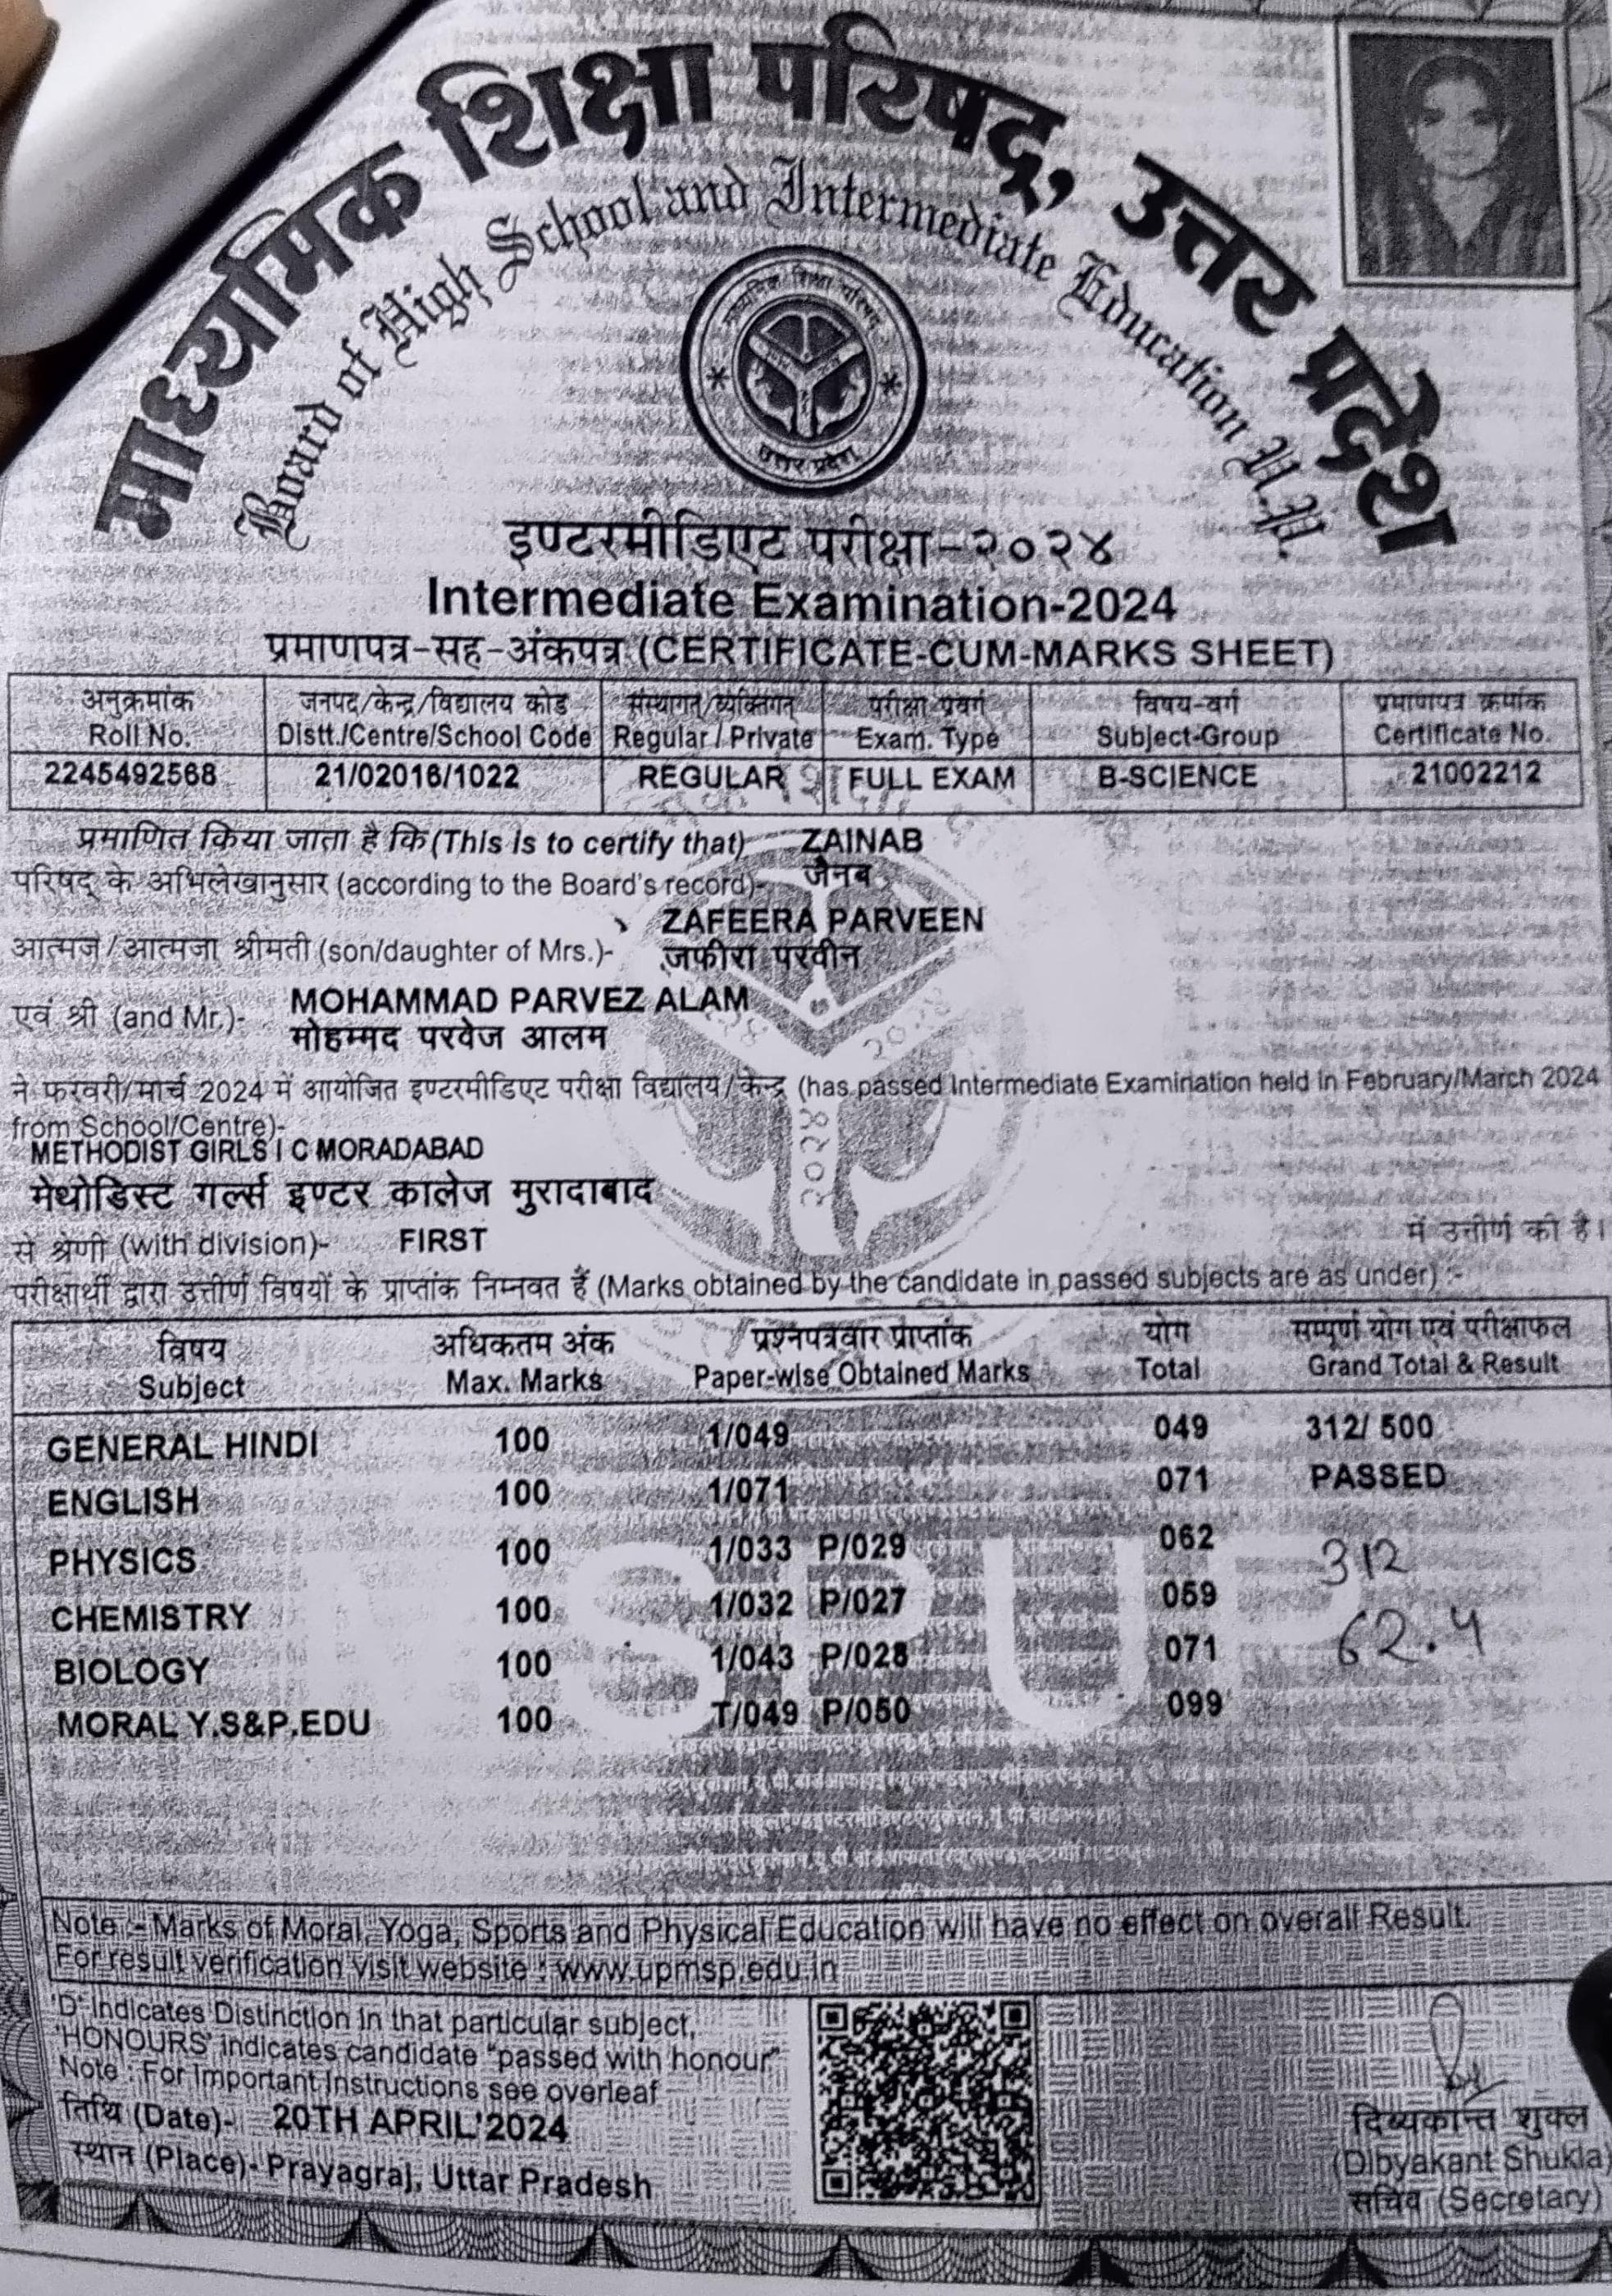 माध्यमिक शिक्षा परिषद्, उत्तर प्रदेश
Board of High School and Intermediate Education U.P.
माध्यमिक शिक्षा परिषद्
उत्तर प्रदेश
इण्टरमीडिएट परीक्षा-२०२४
Intermediate Examination-2024
प्रमाणपत्र-सह-अंकपत्र (CERTIFICATE-CUM-MARKS SHEET)
अनुक्रमांक जनपद/केन्द्र/विद्यालय कोड संस्थागत/व्यक्तिगत परीक्षा प्रवर्ग विषय-वर्ग प्रमाणपत्र क्रमांक
Roll No. Distt./Centre/School Code Regular / Private Exam. Type Subject-Group Certificate No.
2245492568 21/02016/1022 REGULAR FULL EXAM B-SCIENCE 21002212
प्रमाणित किया जाता है कि (This is to certify that)- ZAINAB
जैनब
परिषद् के अभिलेखानुसार (according to the Board's record)-
ZAFEERA PARVEEN
आत्मज/आत्मजा श्रीमती (son/daughter of Mrs.)- जफीरा परवीन
MOHAMMAD PARVEZ ALAM
एवं श्री (and Mr.)-
मोहम्मद परवेज आलम
ने फरवरी/मार्च 2024 में आयोजित इण्टरमीडिएट परीक्षा विद्यालय/केन्द्र (has passed Intermediate Examination held in February/March 2024
from School/Centre)-
METHODIST GIRLS I C MORADABAD
मेथोडिस्ट गर्ल्स इण्टर कालेज मुरादाबाद
से श्रेणी (with division)- FIRST में उत्तीर्ण की है।
परीक्षार्थी द्वारा उत्तीर्ण विषयों के प्राप्तांक निम्नवत हैं (Marks obtained by the candidate in passed subjects are as under) :-
विषय अधिकतम अंक प्रश्नपत्रवार प्राप्तांक योग सम्पूर्ण योग एवं परीक्षाफल
Subject Max. Marks Paper-wise Obtained Marks Total Grand Total & Result
GENERAL HINDI 100 1/049 049 312/ 500
ENGLISH 100 1/071 071 PASSED
PHYSICS 100 1/033 P/029 062
312
CHEMISTRY 100 1/032 P/027 059
62.4
BIOLOGY 100 1/043 P/028 071
MORAL Y.S&P.EDU 100 T/049 P/050 099
Note :- Marks of Moral, Yoga, Sports and Physical Education will have no effect on overall Result.
For result verification visit website : www.upmsp.edu.in
'D' Indicates Distinction in that particular subject,
'HONOURS' indicates candidate "passed with honour"
Note : For Important Instructions see overleaf
तिथि (Date)- 20TH APRIL'2024
स्थान (Place)- Prayagraj, Uttar Pradesh
दिब्यकान्त शुक्ल
(Dibyakant Shukla)
सचिव (Secretary)